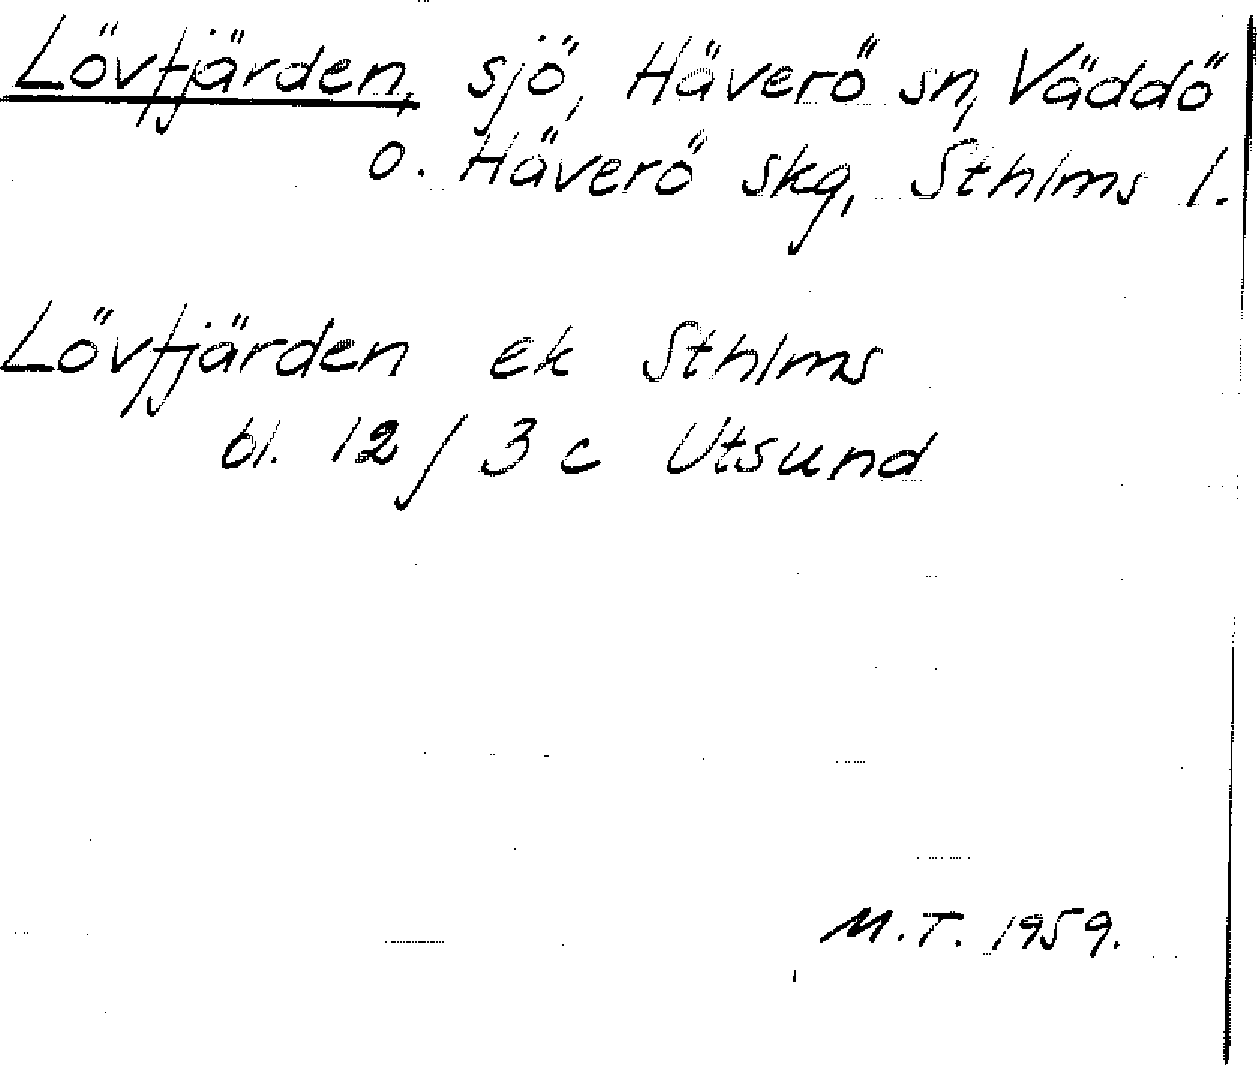 Lövfjärden, sjö, Häverö sn, Väddö
o. Häverö skg, Sthlms l.
Lövfjärden ek Sthlms
bl. 12/3c Utsund
M.T. 1959.